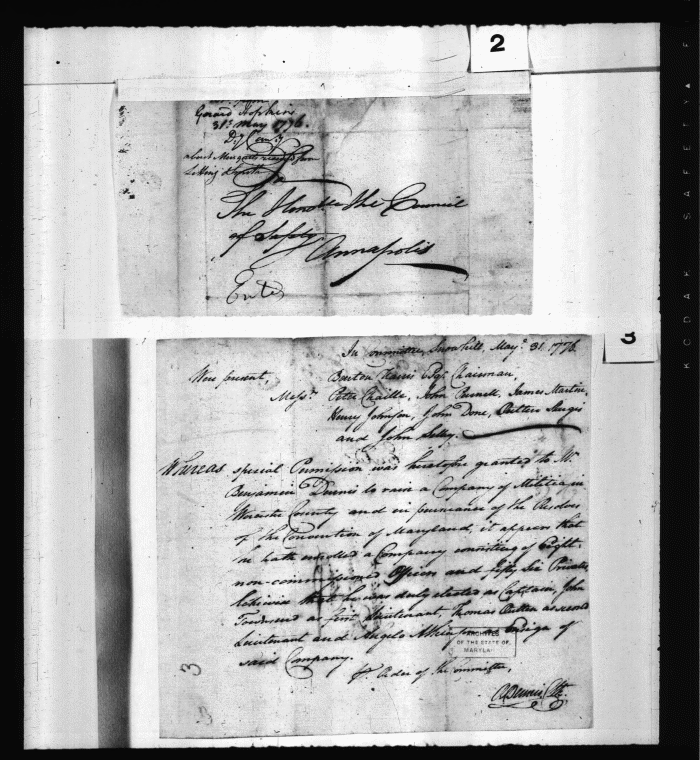 2
Gerard Hopkins
31st May 1776.
about Musquets
To
The Honble the Council
of Safety
Annapolis
Entd
3
In Committee, Snowhill, May 31. 1776.
Were present, Benton Harris Esqr. Chairman,
Messrs. Peter Chaille, John Purnell, James Martin,
Henry Johnson, John Done,
and John Selby.
Whereas special Permission was heretofore granted to Mr.
Benjamin Dennis to raise a Company of Militia in
Worcester County and in pursuance of the Resolves
of the Convention of Maryland, it appears that
he hath enrolled a Company consisting of Eight
non-commissioned Officers and fifty Six Privates
likewise that he was duly elected as Captain, John
Townsend as first Lieutenant Thomas as second
Lieutenant and Angelo Atkinson as Ensign of
said Company.
ARCHIVES
OF THE STATE OF
MARYLAND
pr. Order of the Committee,
Dennis Clk.
3
3
KODAK SAFETY